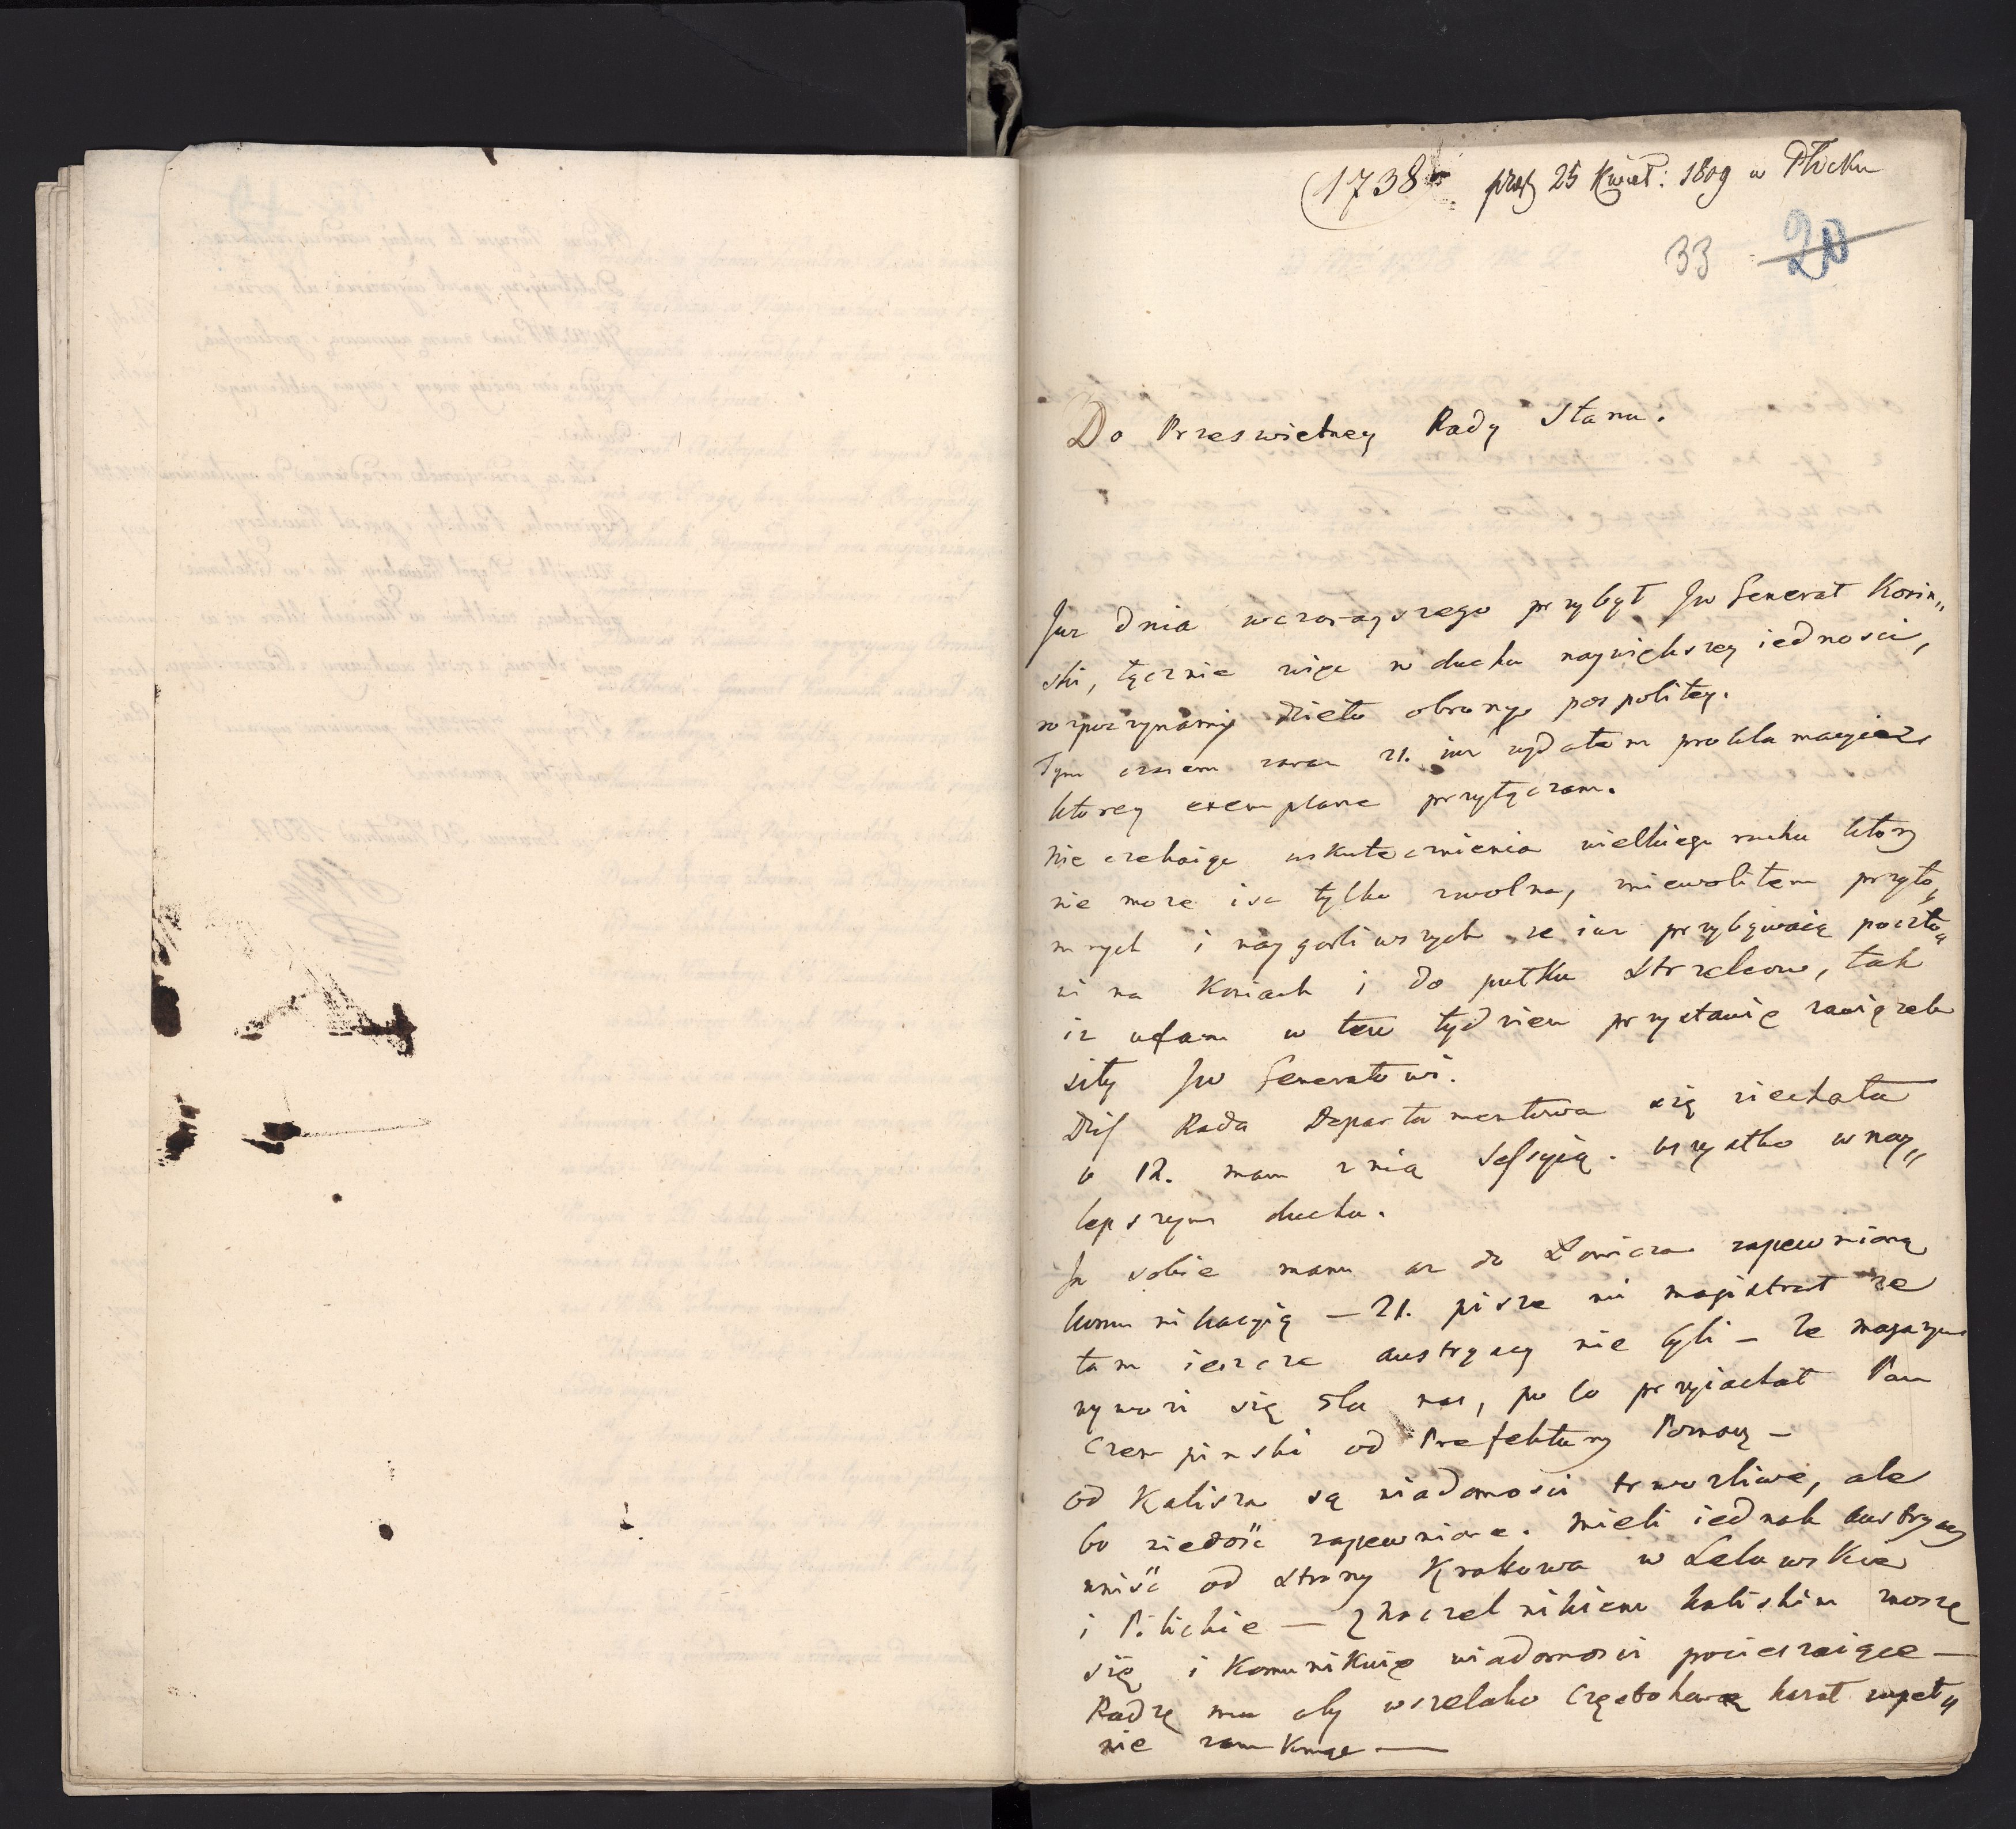 1738 prez 25 Kwiet: 1809 w Płocku
33 20
Do Przeswietney Rady Stanu.
Juz dnia wczorayszego przybył JW Generał Kosin„
ski, łącznie więc w duchu naywiększey iednosci,
rozpoczynamy dzieło obrony pospolitey.
Tym czasem zaraz 21. iuz wydałem proklamacyie z
ktorey exemplarze przyłączam.
Nie czekaiąc uskutecznienia wielkiego ruchu ktory
nie moze isc tylko zwolna, zniewoliłem przyto„
mnych i naygorliwszych ze iuz przybywaią poczto„
wi na koniach i do pułku Strzelcow, tak
iz ufam w ten tydzien przystawię zawiązek
siły JW Generałowi.
Dziś Rada Departamentowa się ziechała
o 12. mam z nią Sessyią. wszystko w nay„
lepszym duchu.
Ja sobie mam az do Łowicza zapewnioną
komunikacyią — 21. pisze mi magistrat ze
tam ieszcze austryacy nie byli — ze magazyn
wywozi się dla nas, po co przyiachał Pan
Czempinski od Prefektury Pomocy —
od Kalisza są wiadomosci trwozliwe, ale
bo niedość zapewnione. mieli iednak austryacy
wniść od strony Krakowa w Lelowskie
i Pilickie — Z naczelnikiem kaliskim znoszę
się i komunikuię wiadomosci pocieszaiące —
Radzę mu aby wszelako Częstohowę kazał zupeł„
nie zamknąc —